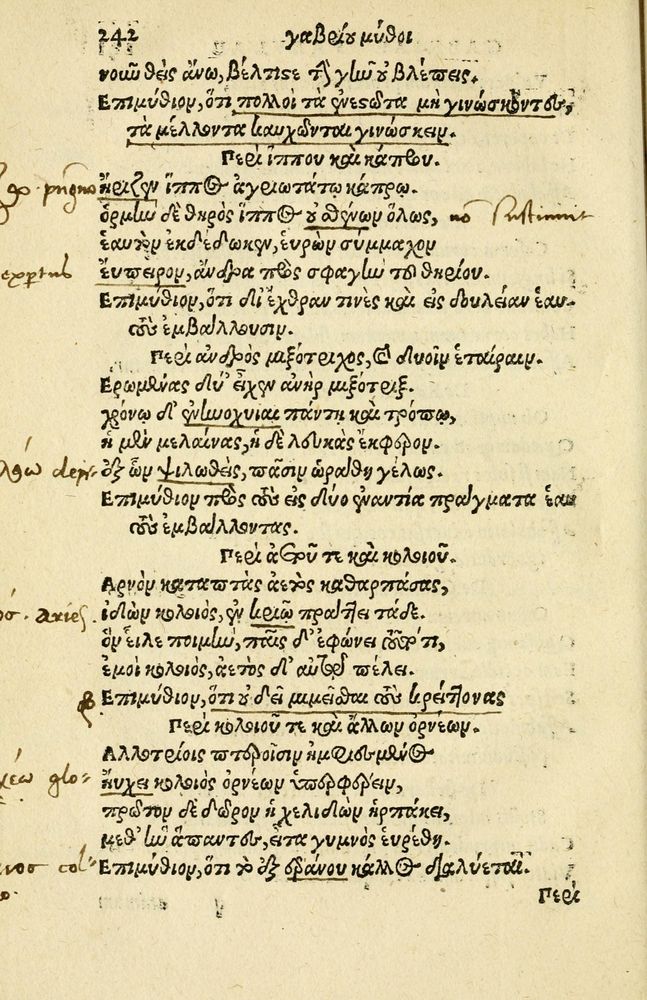 242 γαβρίου μῦθοι
θεὶς ἄνω, βέλτιστε τὴν γῆν οὐ βλέπεις.
Επιμύθιον, ὅτι πολλοὶ τὰ ἐνεστῶτα μὴ γινώσκοντες,
τὰ μέλλοντα καυχῶνται γινώσκειν.
Περὶ ἵππου καὶ κάπρου.
ἤριζεν ἵππος ἀγριωτάτῳ κάπρῳ.
ὁρμὴν δὲ θηρὸς ἵππος οὐ σθένων ὅλως, no sustinuit
ἑαυτὸν ἐκδέδωκεν, εὑρὼν σύμμαχον
expertus ἔμπειρον, ἄνδρα πρὸς σφαγὴν τοῦ θηρίου.
Επιμύθιον, ὅτι δι' ἔχθραν τινὲς καὶ εἰς δουλείαν ἑαυ-
τοὺς ἐμβάλλουσιν.
Περὶ ἀνδρὸς μιξότριχος, καὶ δυοῖν ἑταίραιν.
Ερωμένας δύ' εἶχεν ἀνὴρ μιξόθριξ.
χρόνῳ δ' ἐνηνοχυίαι πάντη καὶ τρόπῳ,
ἡ μὲν μελαίνας, ἡ δὲ λευκὰς ἔκφερον.
ἐξ ὧν ψιλωθεὶς, πᾶσιν ὡράθη γέλως.
Επιμύθιον πρὸς τοὺς εἰς δύο ἐναντία πράγματα ἑαυ
τοὺς ἐμβάλλοντας.
Περὶ ἀετοῦ τε καὶ κολοιοῦ.
Αρνὸν καταπτὰς ἀετὸς καθαρπάσας,
aries. ἰδὼν κολοιὸς, ἐν κριῷ πράττει τάδε.
ὃν εἷλε ποιμὴν, παῖς δ' ἐφώνει τοῦτ', τί,
ἐμοὶ κολοιὸς, ἀετὸς δ' αὑτῷ πέλει.
Επιμύθιον, ὅτι οὐ δεῖ μιμεῖσθαι τοὺς κρείττονας
Περὶ κολοιοῦ τε καὶ ἄλλων ὀρνέων.
Αλλοτρίοις πτεροῖσιν ἠμφιεσμένος
ηὔχει κολοιὸς ὀρνέων ὑπερφέρειν,
πρῶτον δὲ δῶρον ἡ χελιδὼν ἥρπακει,
μεθ' ἣν ἅπαντες, εἶτα γυμνὸς εὑρέθη.
Επιμύθιον, ὅτι τὸ ἐξ ἐράνου κάλλος διαλύεται.
Περὶ